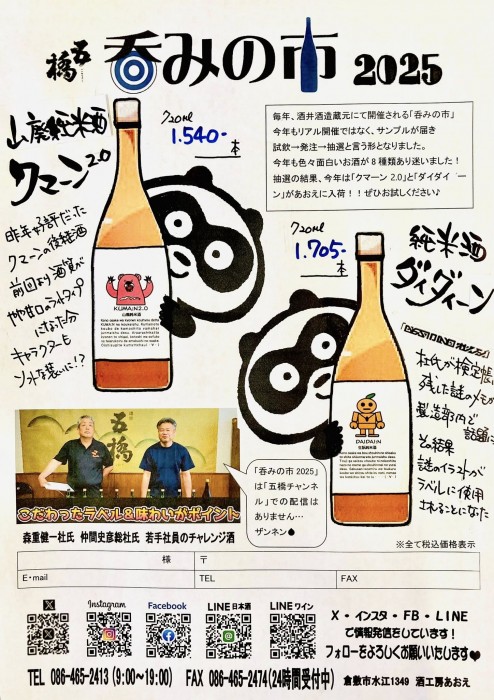 五橋 呑みの市 2025
山廃純米酒
クマーン2.0
720ml
1.540-
本
毎年、酒井酒造蔵元にて開催される「呑みの市」
今年もリアル開催ではなく、サンプルが届き
試飲→発注→抽選と言う形となりました。
今年も色々面白いお酒が8種類あり迷いました！
抽選の結果、今年は「クマーン2.0」と「ダイダイーン」があおえに入荷！！ぜひお試しください♪
昨年好評だった
クマーンの後継酒
前回より酒質が
やや甘口のライトタイプ
になった分
キャラクターも
ソフトな装いに!?
KUMA:N 2.0
山廃純米酒
720ml
1.705-
本
純米酒
ダイダイーン
杜氏が検定帳に
残した謎のメモが
製造部内で
話題に
その結果
謎のイラストが
ラベルに使用
されることになった
DAIDAI:N
五橋
こだわったラベル＆味わいがポイント
森重健一杜氏 仲間史彦総杜氏 若手社員のチャレンジ酒
「呑みの市 2025」
は「五橋チャンネ
ル」での配信は
ありません…
ザンネン
※全て税込価格表示
様 〒
E・mail TEL FAX
X Instagram Facebook LINE日本酒 LINEワイン
X・インスタ・FB・LINE
で情報発信をしています！
フォローをよろしくお願いいたします♥
TEL 086-465-2413 (9:00～19:00) FAX 086-465-2474(24時間受付中) 倉敷市水江1349 酒工房あおえ